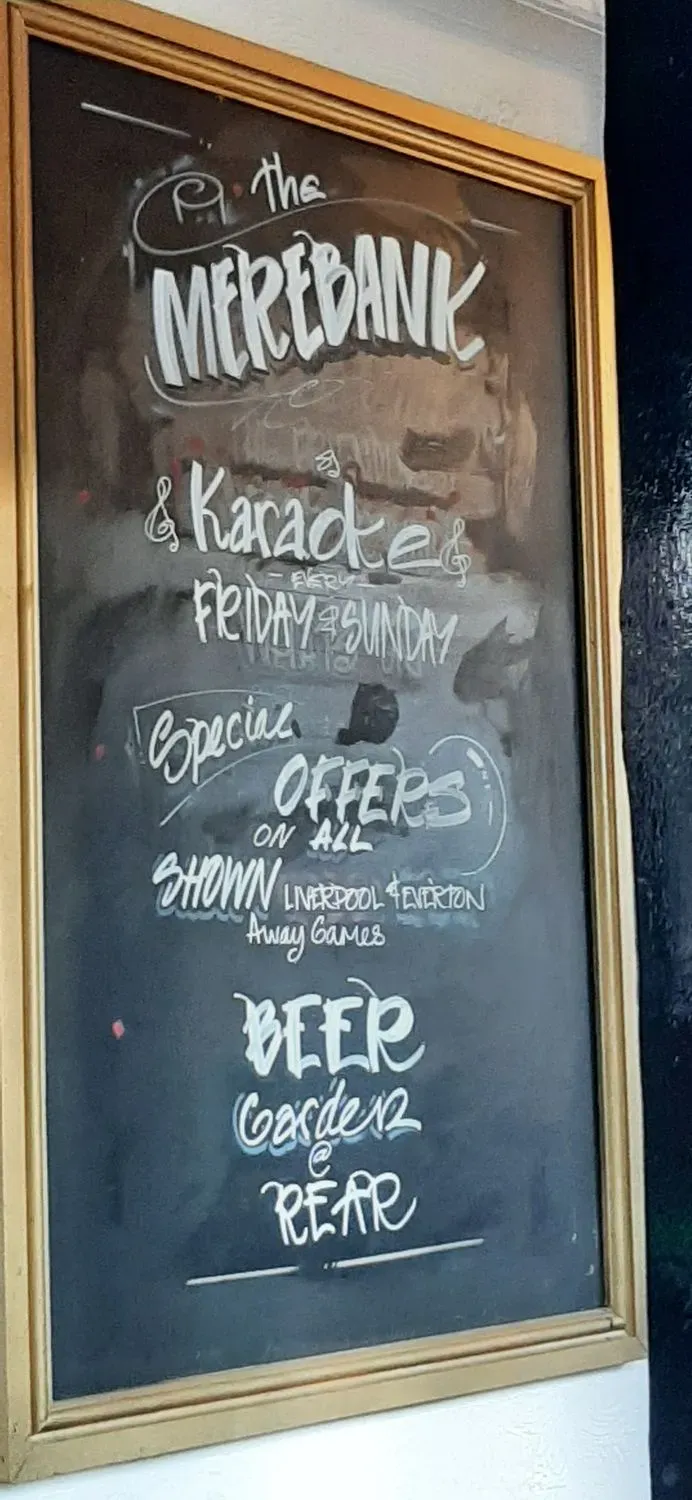 the
MEREBANK
Karaoke
- EVERY -
FRIDAY & SUNDAY
Special
OFFERS
ON ALL
SHOWN LIVERPOOL & EVERTON
Away Games
BEER
Garden
@
REAR